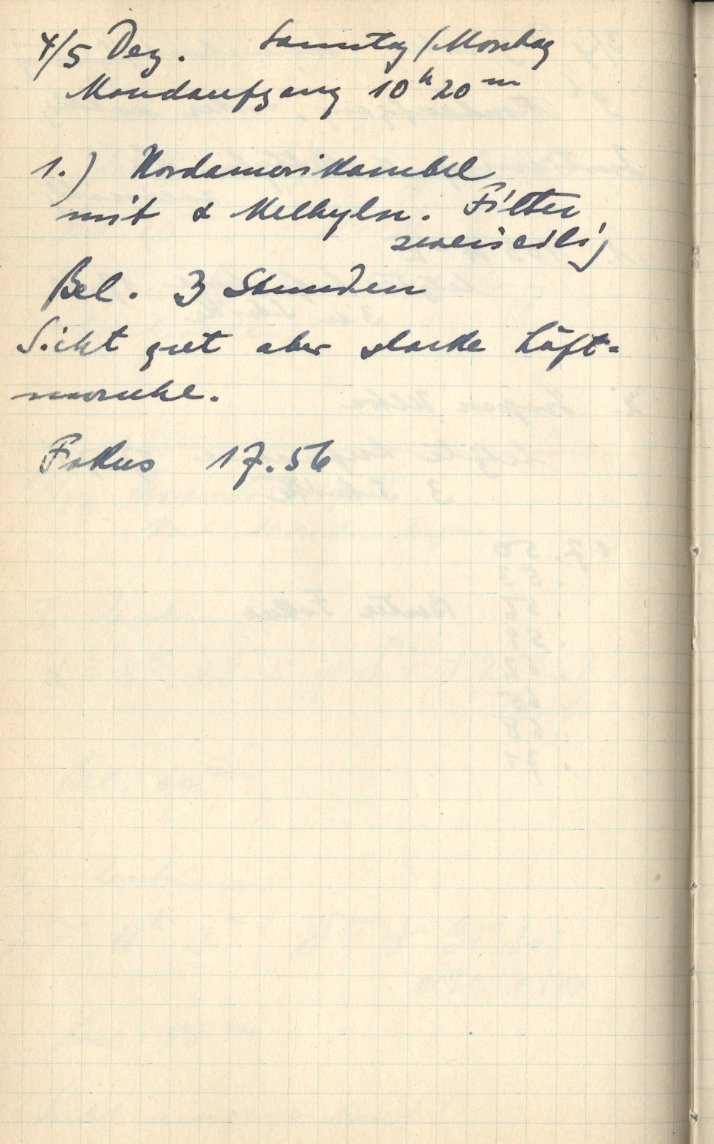 4/5 Dez. Sonntag/Montag
Mondaufgang 10h 20m
1.) Nordamerikanebel
mit Filter
zweiseitig
Bel. 3 Stunden
Sicht gut aber starke Luft-
unruhe.
Fokus 17.56